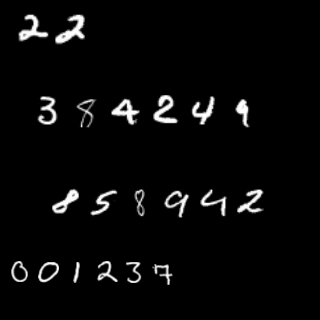 22
384249
858942
001237